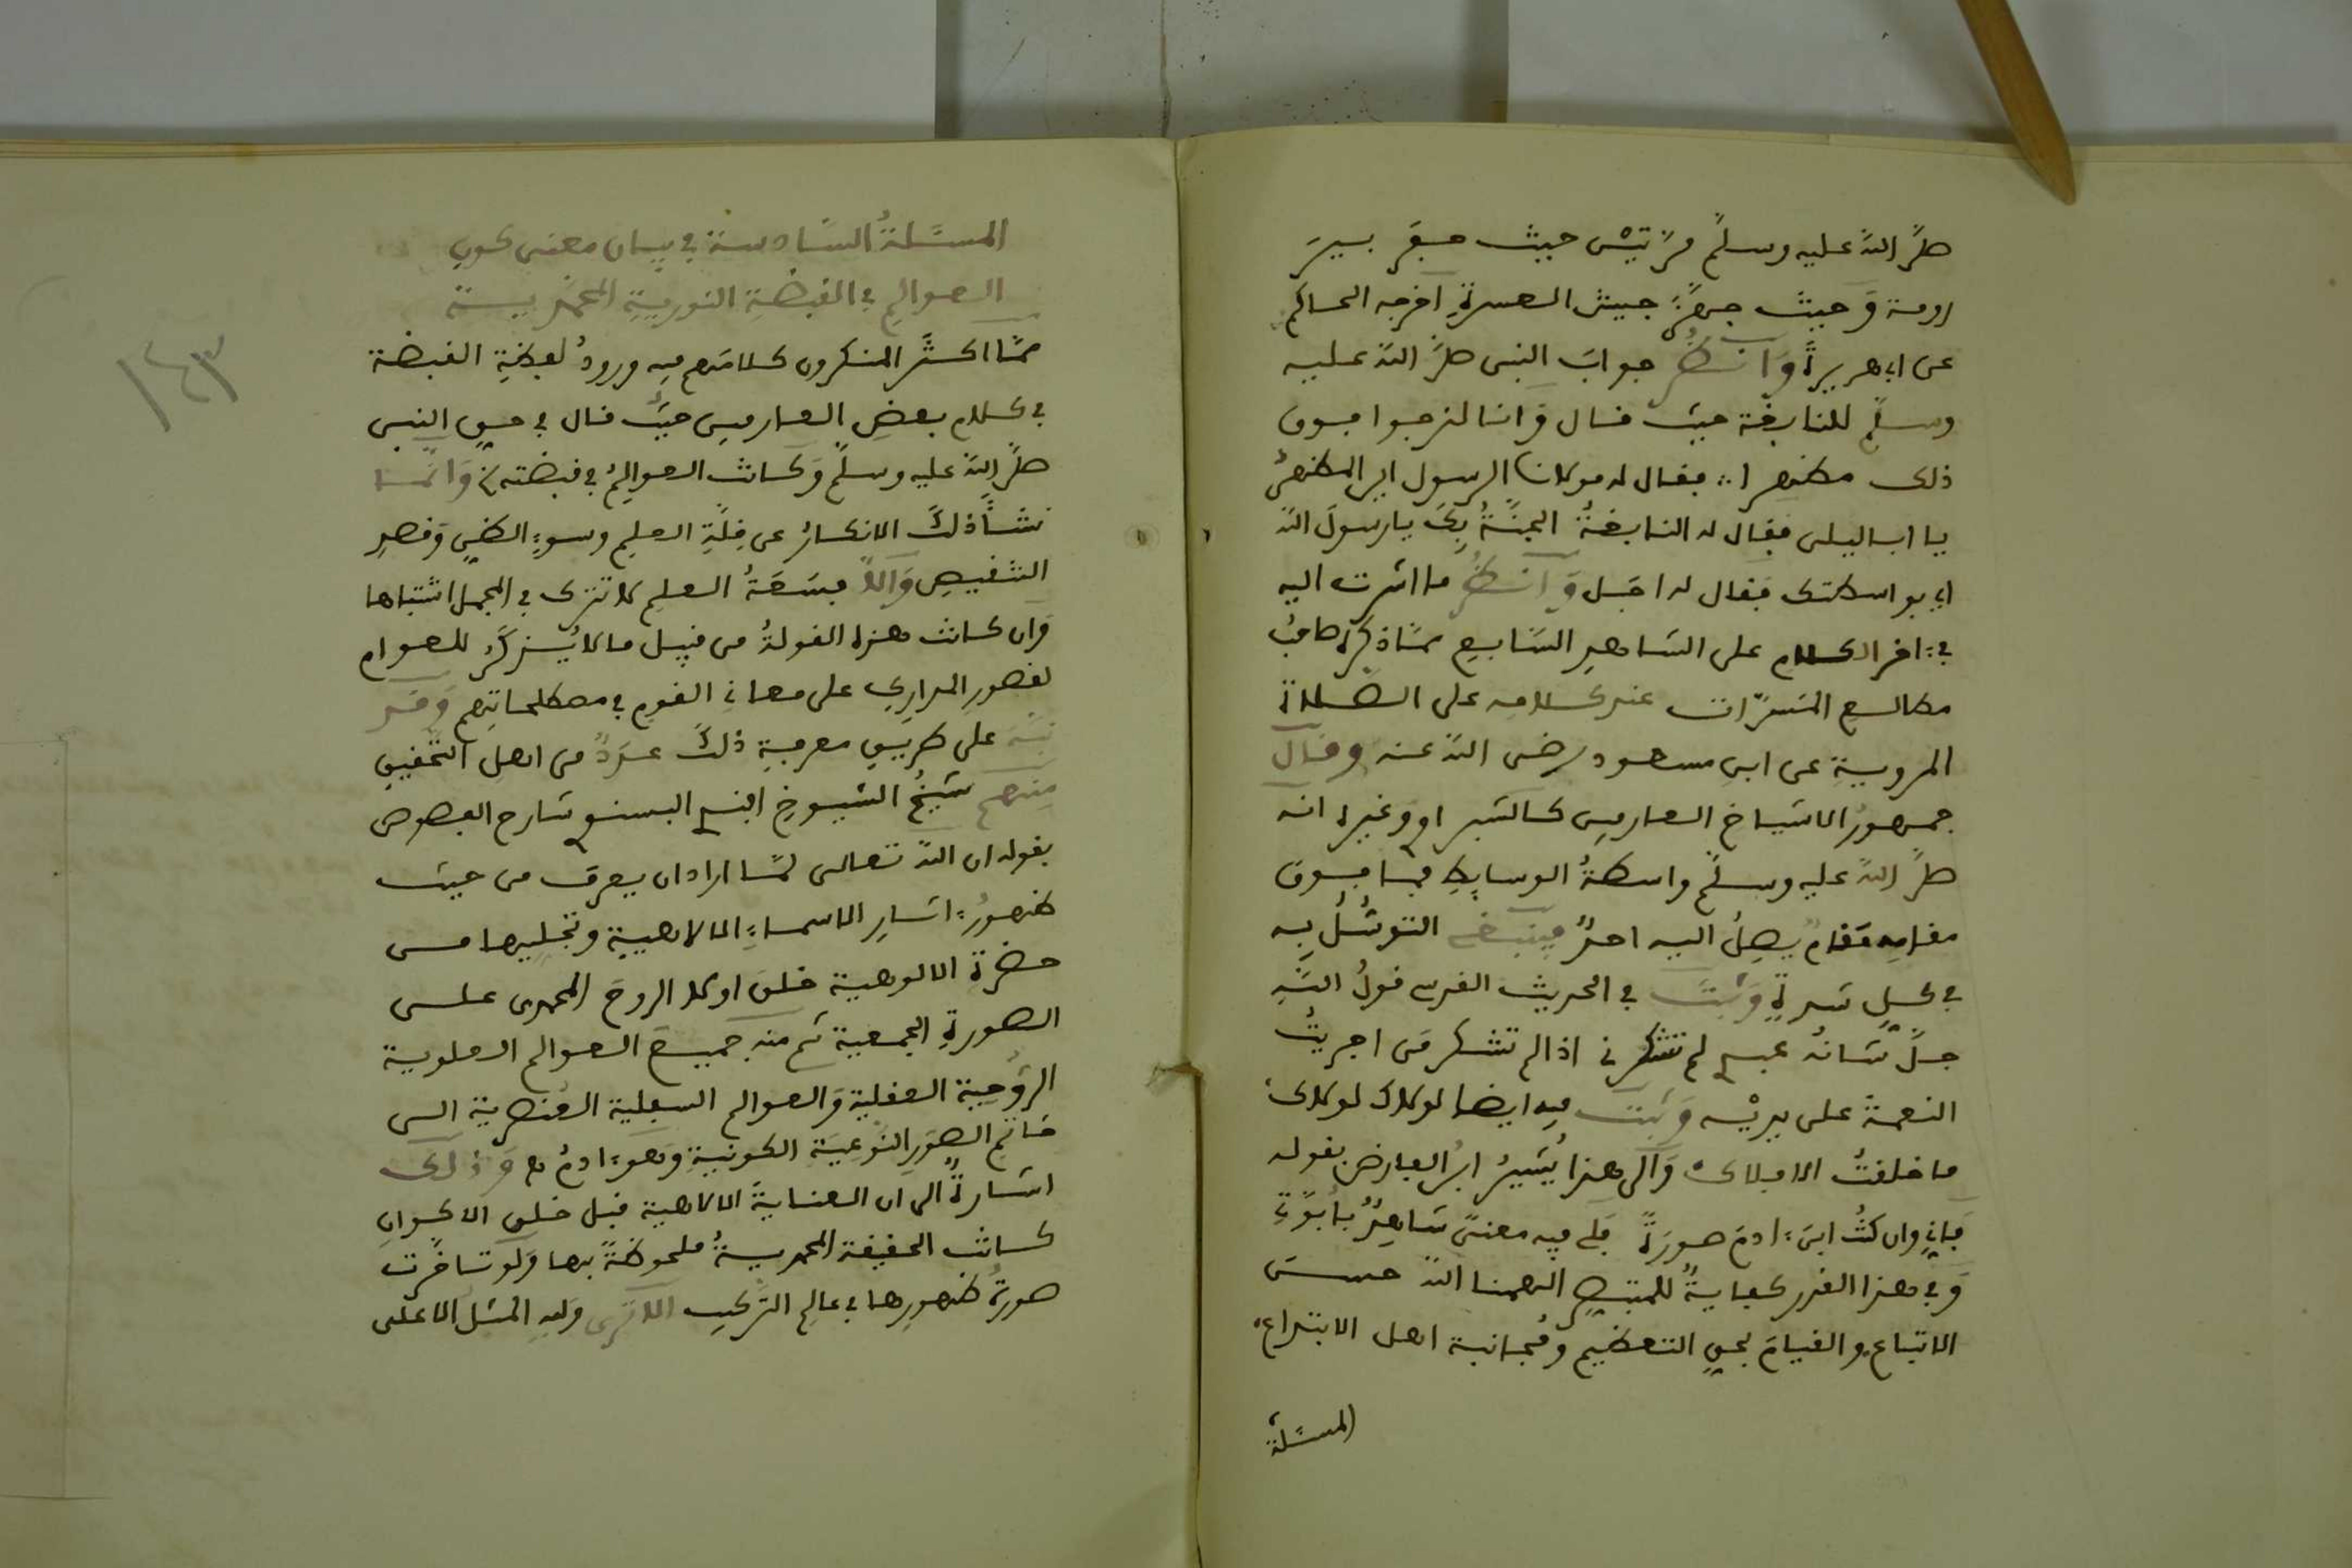 صلى الله عليه وسلم مرتين حيث حفر بير
رومة وحيث جهز جيش العسرة اخرجه الحاكم
عن ابي هريرة وانظر جواب النبي صلى الله عليه
وسلم للنابغة حيث قال وانا لنرجوا فوق
ذلك مظهرا فقال له مولانا الرسول اين المظهر
يا ابا ليلى فقال له النابغة الجنة بك يا رسول الله
اي بواسطتك فقال له اجل وانظر ما اشرت اليه
في اخر الكلام على الشاهد السابع مما ذكره صاحب
مطالع المسرات عند كلامه على الصلاة
المروية عن ابن مسعود رضي الله عنه وقال
جمهور الاشياخ العارفين كالشبراوي وغيره انه
صلى الله عليه وسلم واسطة الوسايط فما فوق
مقامه مقام يصل اليه احد فينبغي التوسل به
في كل شدة وثبت في الحديث القدسي قول الله
جل شانه عبدي لم تشكرني اذا لم تشكر من اجريت
النعمة على يديه وثبت فيه ايضا لولاك لولاك
ما خلقت الافلاك والى هذا يشير ابن الفارض بقوله
فاني وان كنت ابن ادم صورة فلي فيه معنى شاهد بابوتي
وفي هذا القدر كفاية للمتبصر الهمنا الله حسن
الاتباع والقيام بحق التعظيم ومجانبة اهل الابتداع
المسئلة
المسئلة السادسة في بيان معنى كون
العوالم في القبضة النورية المحمدية
مما اكثر المنكرون كلامهم فيه ورود لفظة القبضة
في كلام بعض العارفين حيث قال في حق النبي
صلى الله عليه وسلم وكانت العوالم في قبضته وانما
نشأ ذلك الانكار عن قلة العلم وسوء الظن وقصر
التنقيص والا فسعة العلم لا تترك في المجمل اشتباها
وان كانت هذه القولة من قبيل ما لا يذكر للعوام
لقصور المدارك على معاني القوم في مصطلحاتهم وقد
نبه على طريق معرفة ذلك عدد من اهل التحقيق
منهم شيخ الشيوخ البسنوي شارح الفصوص
بقوله ان الله تعالى لما اراد ان يعرف من حيث
ظهور اثار الاسماء الالاهية وتجليها من
حضرة الالوهية خلق اولا الروح المحمدى على
الصورة الجمعية ثم منه جميع العوالم العلوية
الروحية العقلية والعوالم السفلية العنصرية الى
خاتم الصور النوعية الكونية وهو ادم وذلك
اشارة الى ان العناية الالاهية قبل خلق الاكوان
كانت الحقيقة المحمدية ملحوظة بها ولو تاخرت
صورة ظهورها في عالم التركيب ولله المثل الاعلى
١٤٣